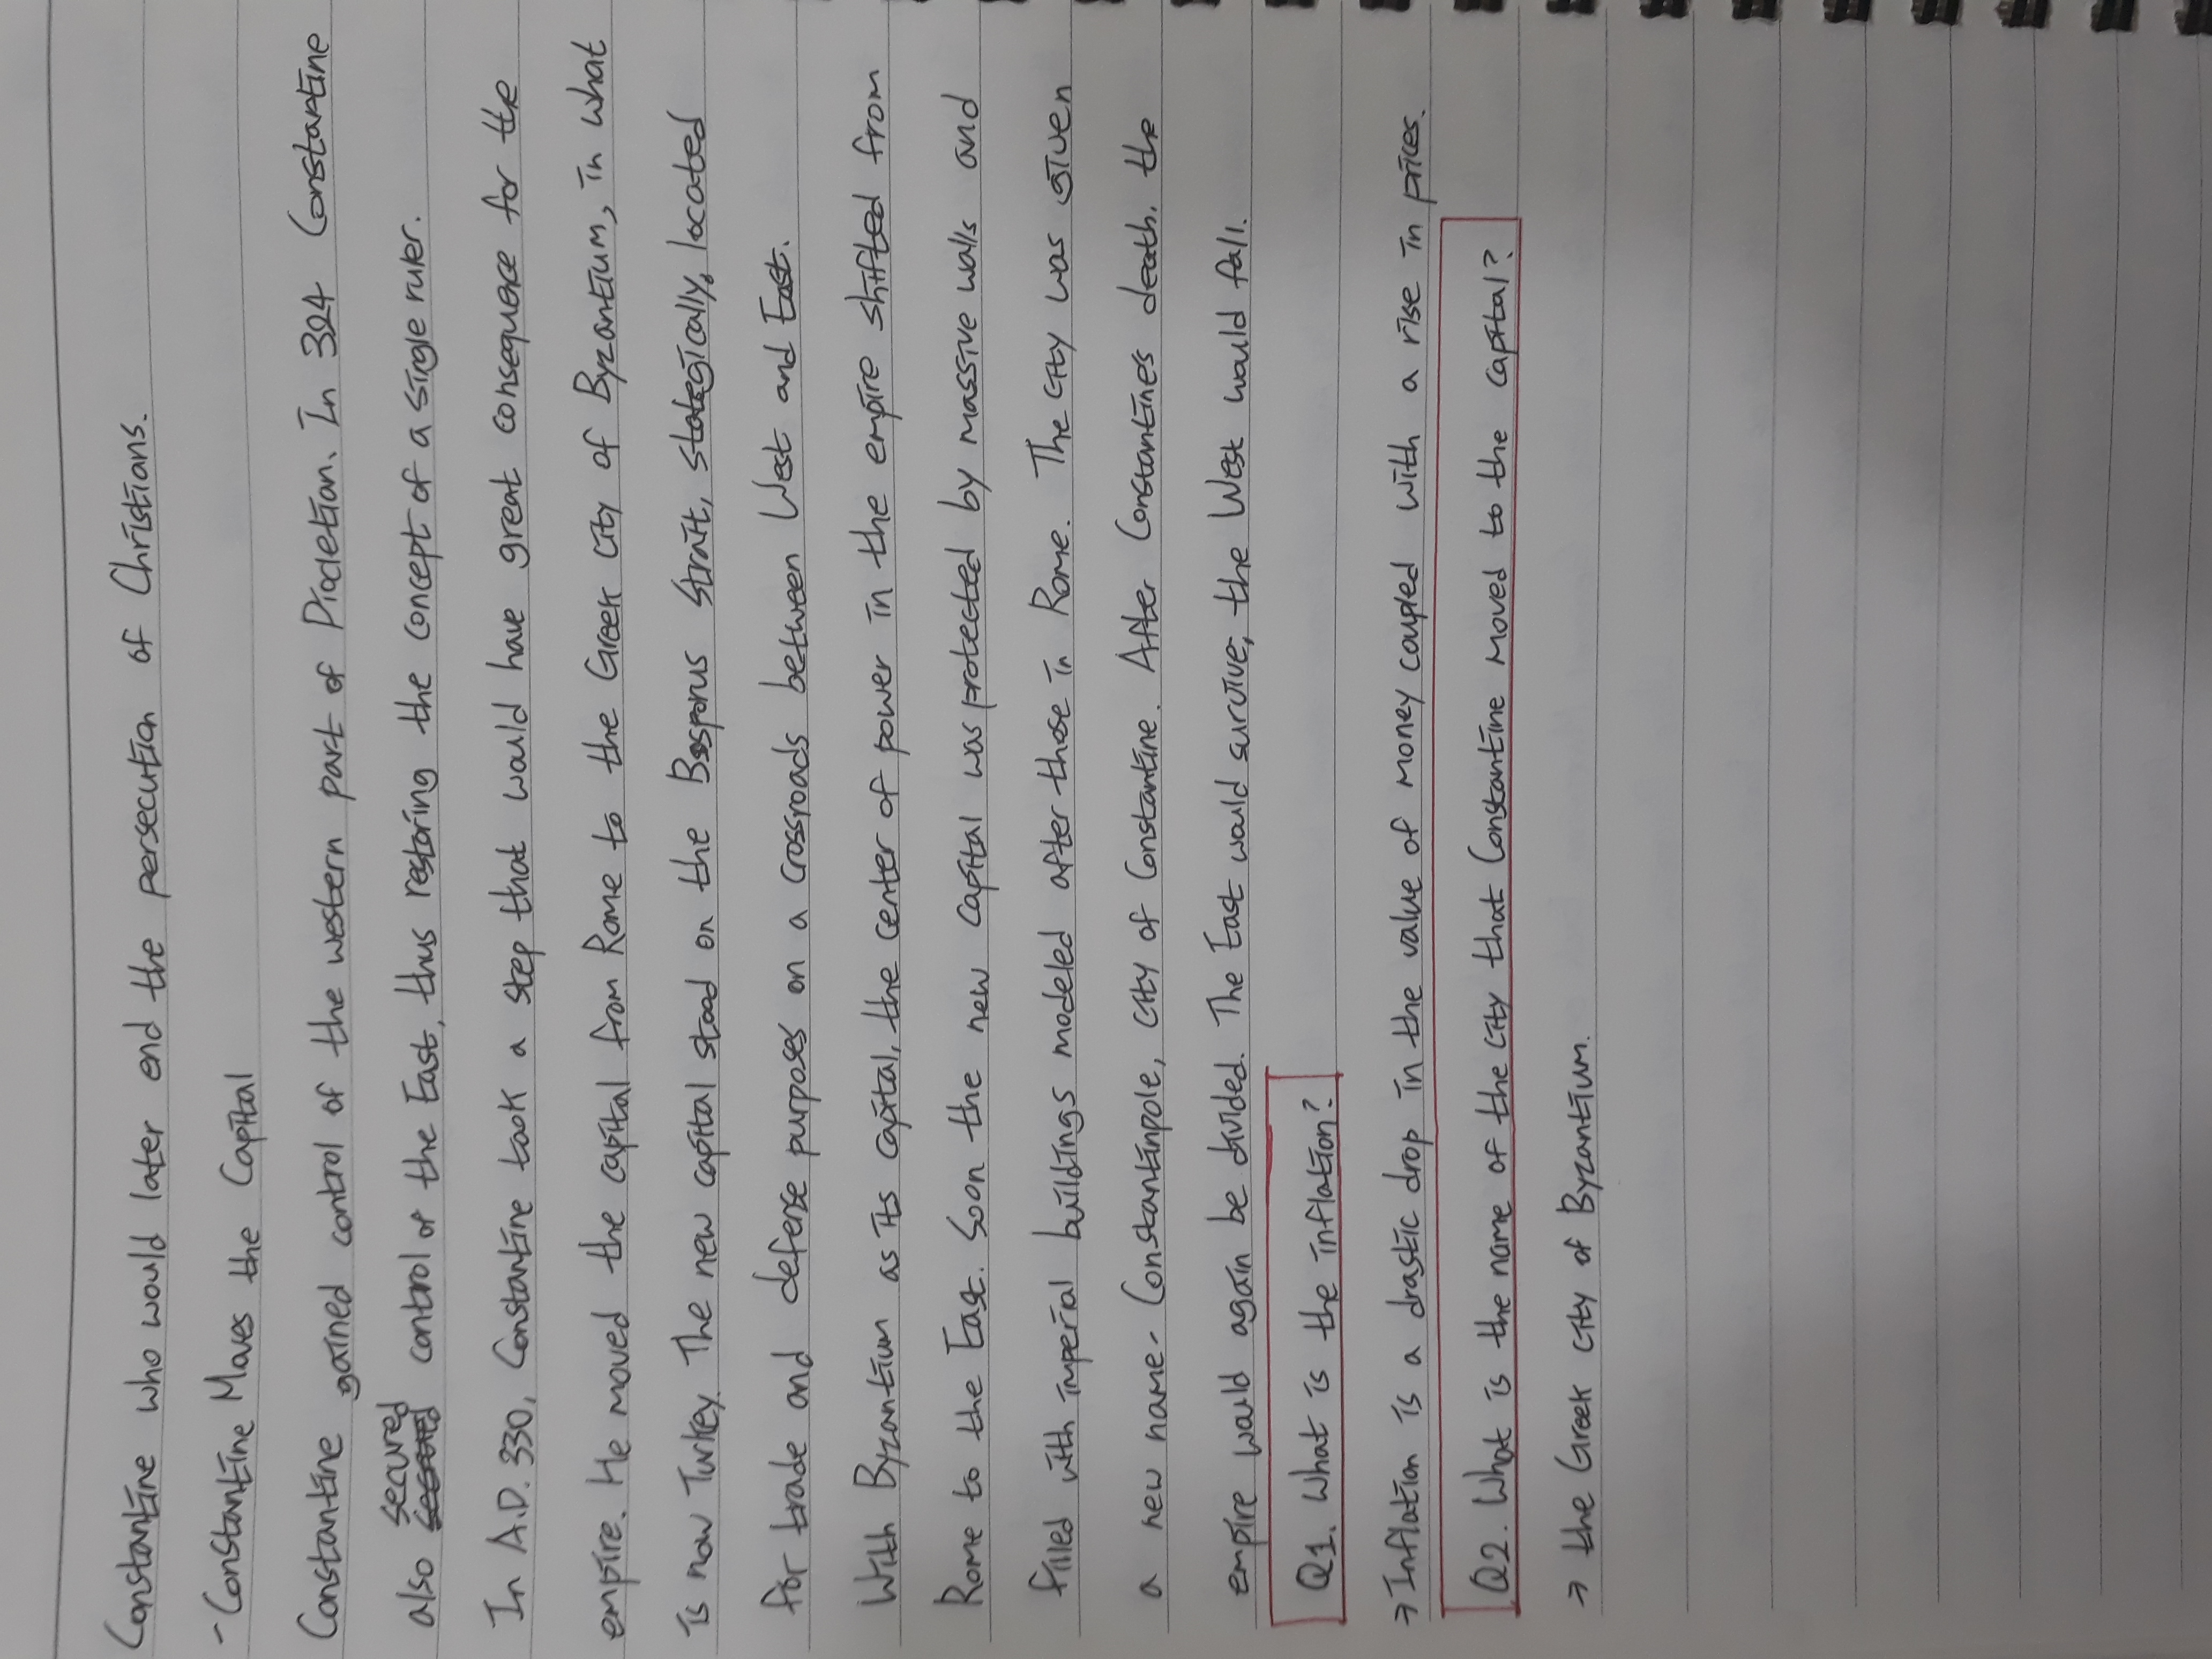 Constantine who would later end the persecution of Christians.
- Constantine Moves the Capital
Constantine gained control of the western part of Diocletian. In 324 Constantine
also secured control of the East, thus restoring the concept of a single ruler.
In A.D. 330, Constantine took a step that would have great consequence for the
empire. He moved the capital from Rome to the Greek city of Byzantium, in what
is now Turkey. The new capital stood on the Bosporus Strait, strategically located
for trade and defense purposes on a crossroads between West and East.
With Byzantium as its capital, the center of power in the empire shifted from
Rome to the East. Soon the new capital was protected by massive walls and
filled with imperial buildings modeled after those in Rome. The city was given
a new name - Constantinpole, city of Constantine. After Constantines death, the
empire would again be divided. The East would survive, the West would fall.
Q1. What is the inflation?
→ Inflation is a drastic drop in the value of money coupled with a rise in prices.
Q2. What is the name of the city that Constantine moved to the capital?
→ the Greek city of Byzantium.